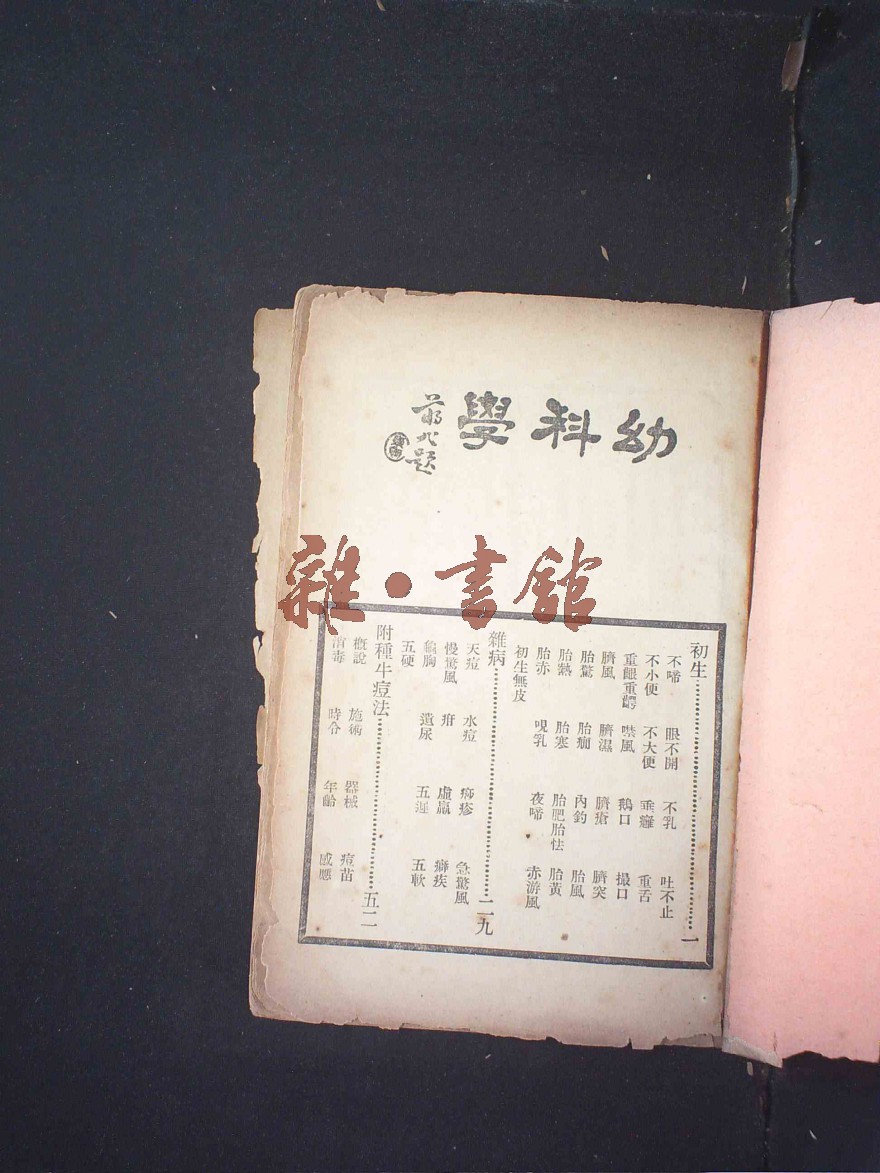 幼科學
題
雜·書館
初生……一
不啼 眼不開 不乳 吐不止
不小便 不大便 垂癰 重舌
重齦重齶 噤風 鵝口 撮口
臍風 臍濕 臍瘡 臍突
胎驚 胎癇 內釣 胎風
胎熱 胎寒 胎肥胎怯 胎黃
胎赤 哯乳 夜啼 赤游風
初生無皮
雜病……二九
天痘 水痘 痧疹 急驚風
慢驚風 疳 虛羸 癖疾
龜胸 遺尿 五遲 五軟
五硬
附種牛痘法……五二
概說 施術 器械 痘苗
消毒 時令 年齡 感應